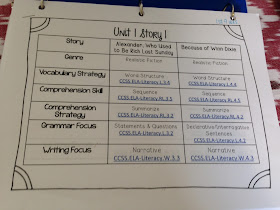 Unit 1 Story 1
Story
Alexander, Who Used to Be Rich Last Sunday
Because of Winn Dixie
Genre
Realistic Fiction
Realistic Fiction
Vocabulary Strategy
Word Structure
CCSS.ELA-Literacy.L.3.4
Word Structure
CCSS.ELA-Literacy.L.4.4
Comprehension Skill
Sequence
CCSS.ELA-Literacy.RL.3.3
Sequence
Comprehension Strategy
Summarize
CCSS.ELA-Literacy.RL.3.2
Summarize
Grammar Focus
Statements & Questions
Declarative/Interrogative Sentences
Writing Focus
Narrative
CCSS.ELA-Literacy.W.3.3
Narrative
CCSS.ELA-Literacy.W.4.3